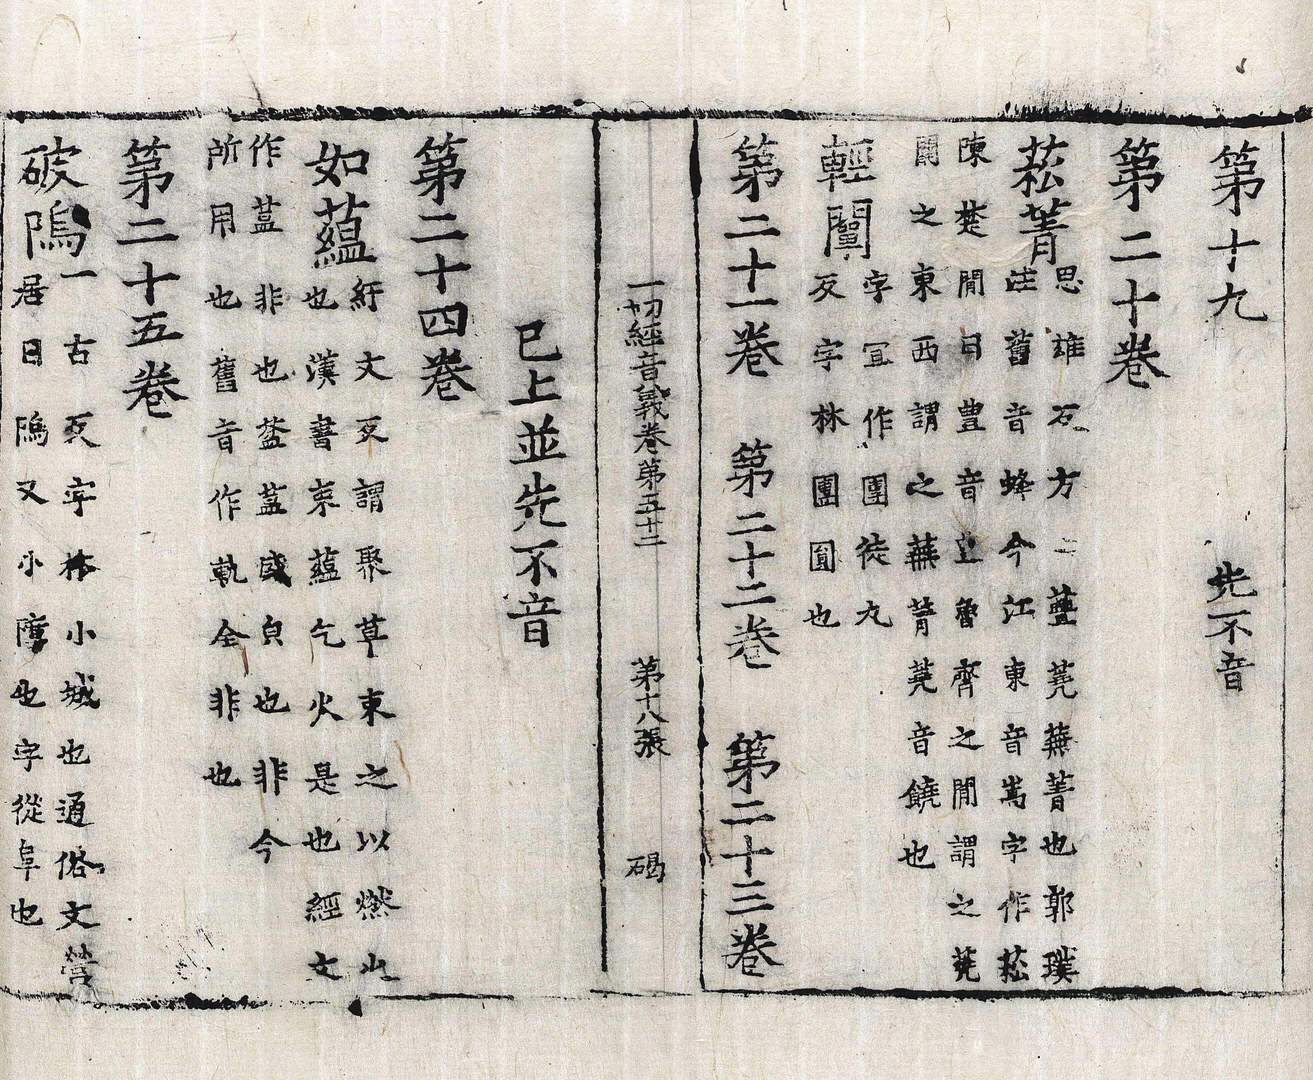 第十九 先不音
第二十卷
菘菁
思雄反方言蘴蕘蕪菁也郭璞
註舊音蜂今江東音嵩字作菘
陳楚閒曰豊音立魯齊之閒謂之蕘
關之東西謂之蕪菁蕘音饒也
輕闠
字冝作團徒丸
反字林團圓也
第二十一卷 第二十二卷 第二十三卷
一切經音義卷第五十二 第十八張 碣
已上並先不音
第二十四卷
如蘊
紆文反謂聚草束之以燃火
也漢書束蘊乞火是也經文
作葢非也葢葢盛皃也非今
所用也舊音作軌全非也
第二十五卷
破隖
一古反字林小城也通俗文營
居曰隖又小障也字從阜也